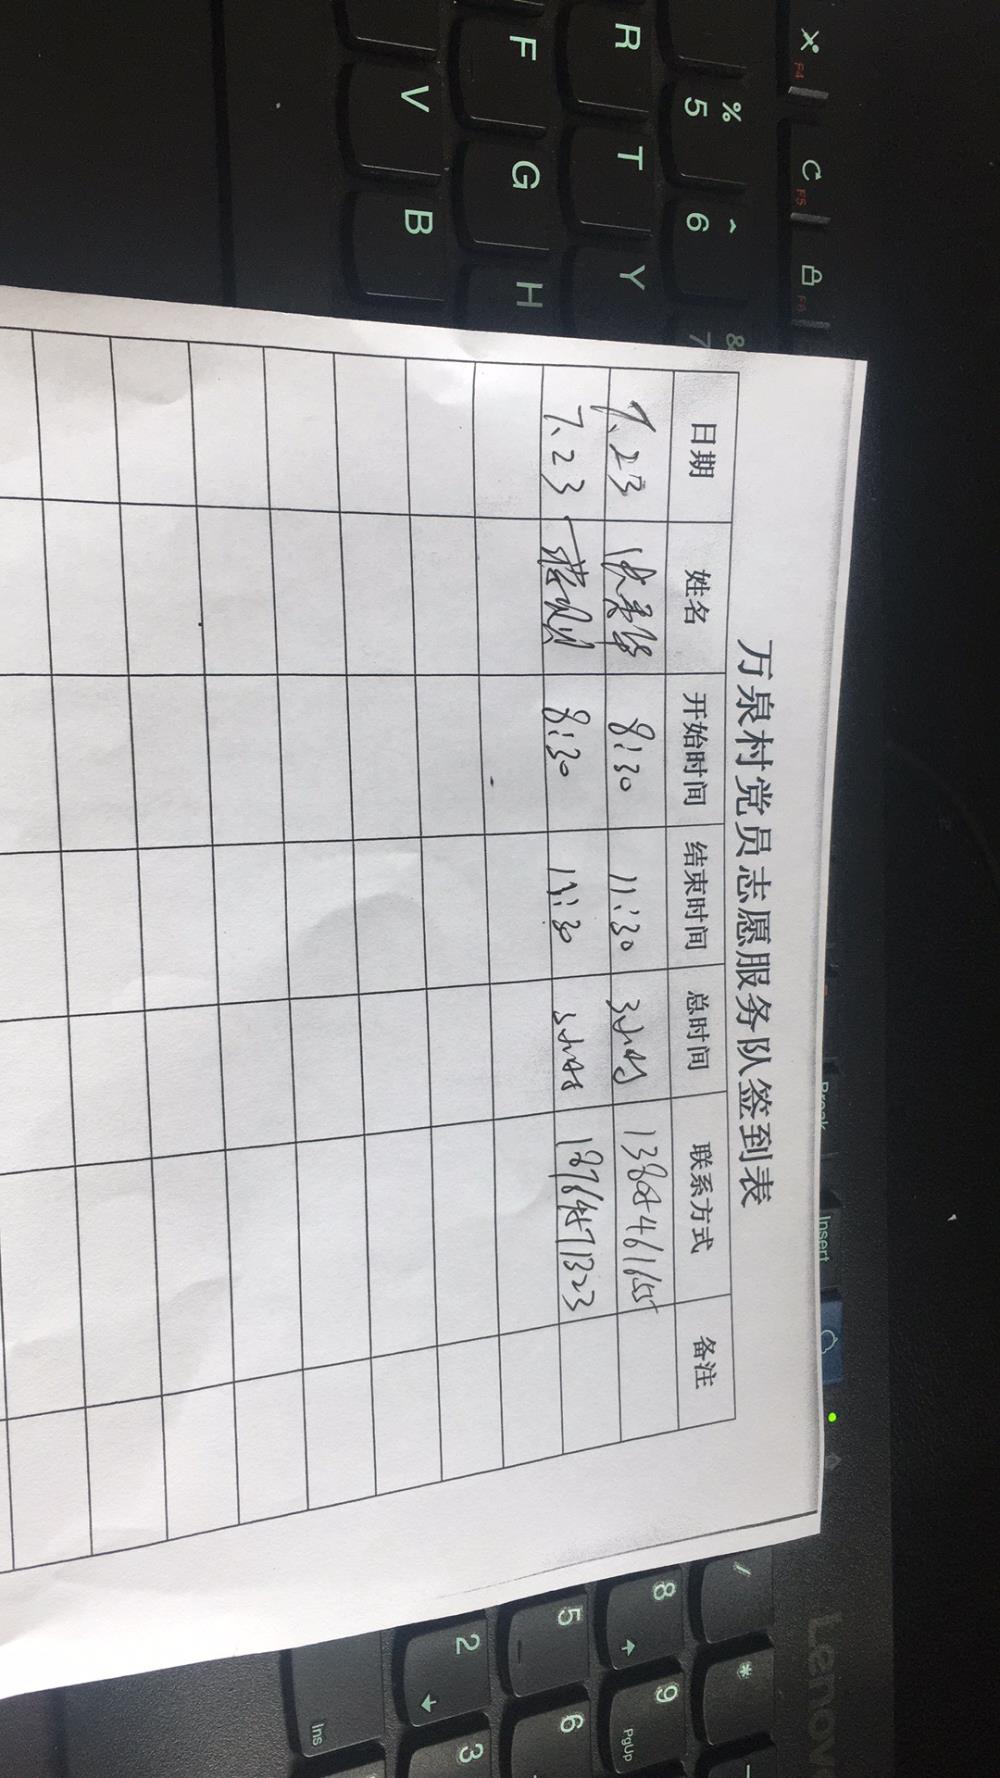 万泉村党员志愿服务队签到表
日期 姓名 开始时间 结束时间 总时间 联系方式 备注
7.23 8:30 11:30 3小时
7.23 8:30 3小时
F4
F5
F6
% 5
^ 6
& 7
R T Y
F G H
V B
Insert
Lenov
/ *
8 9 PgUp
5 6
2 3
Ins